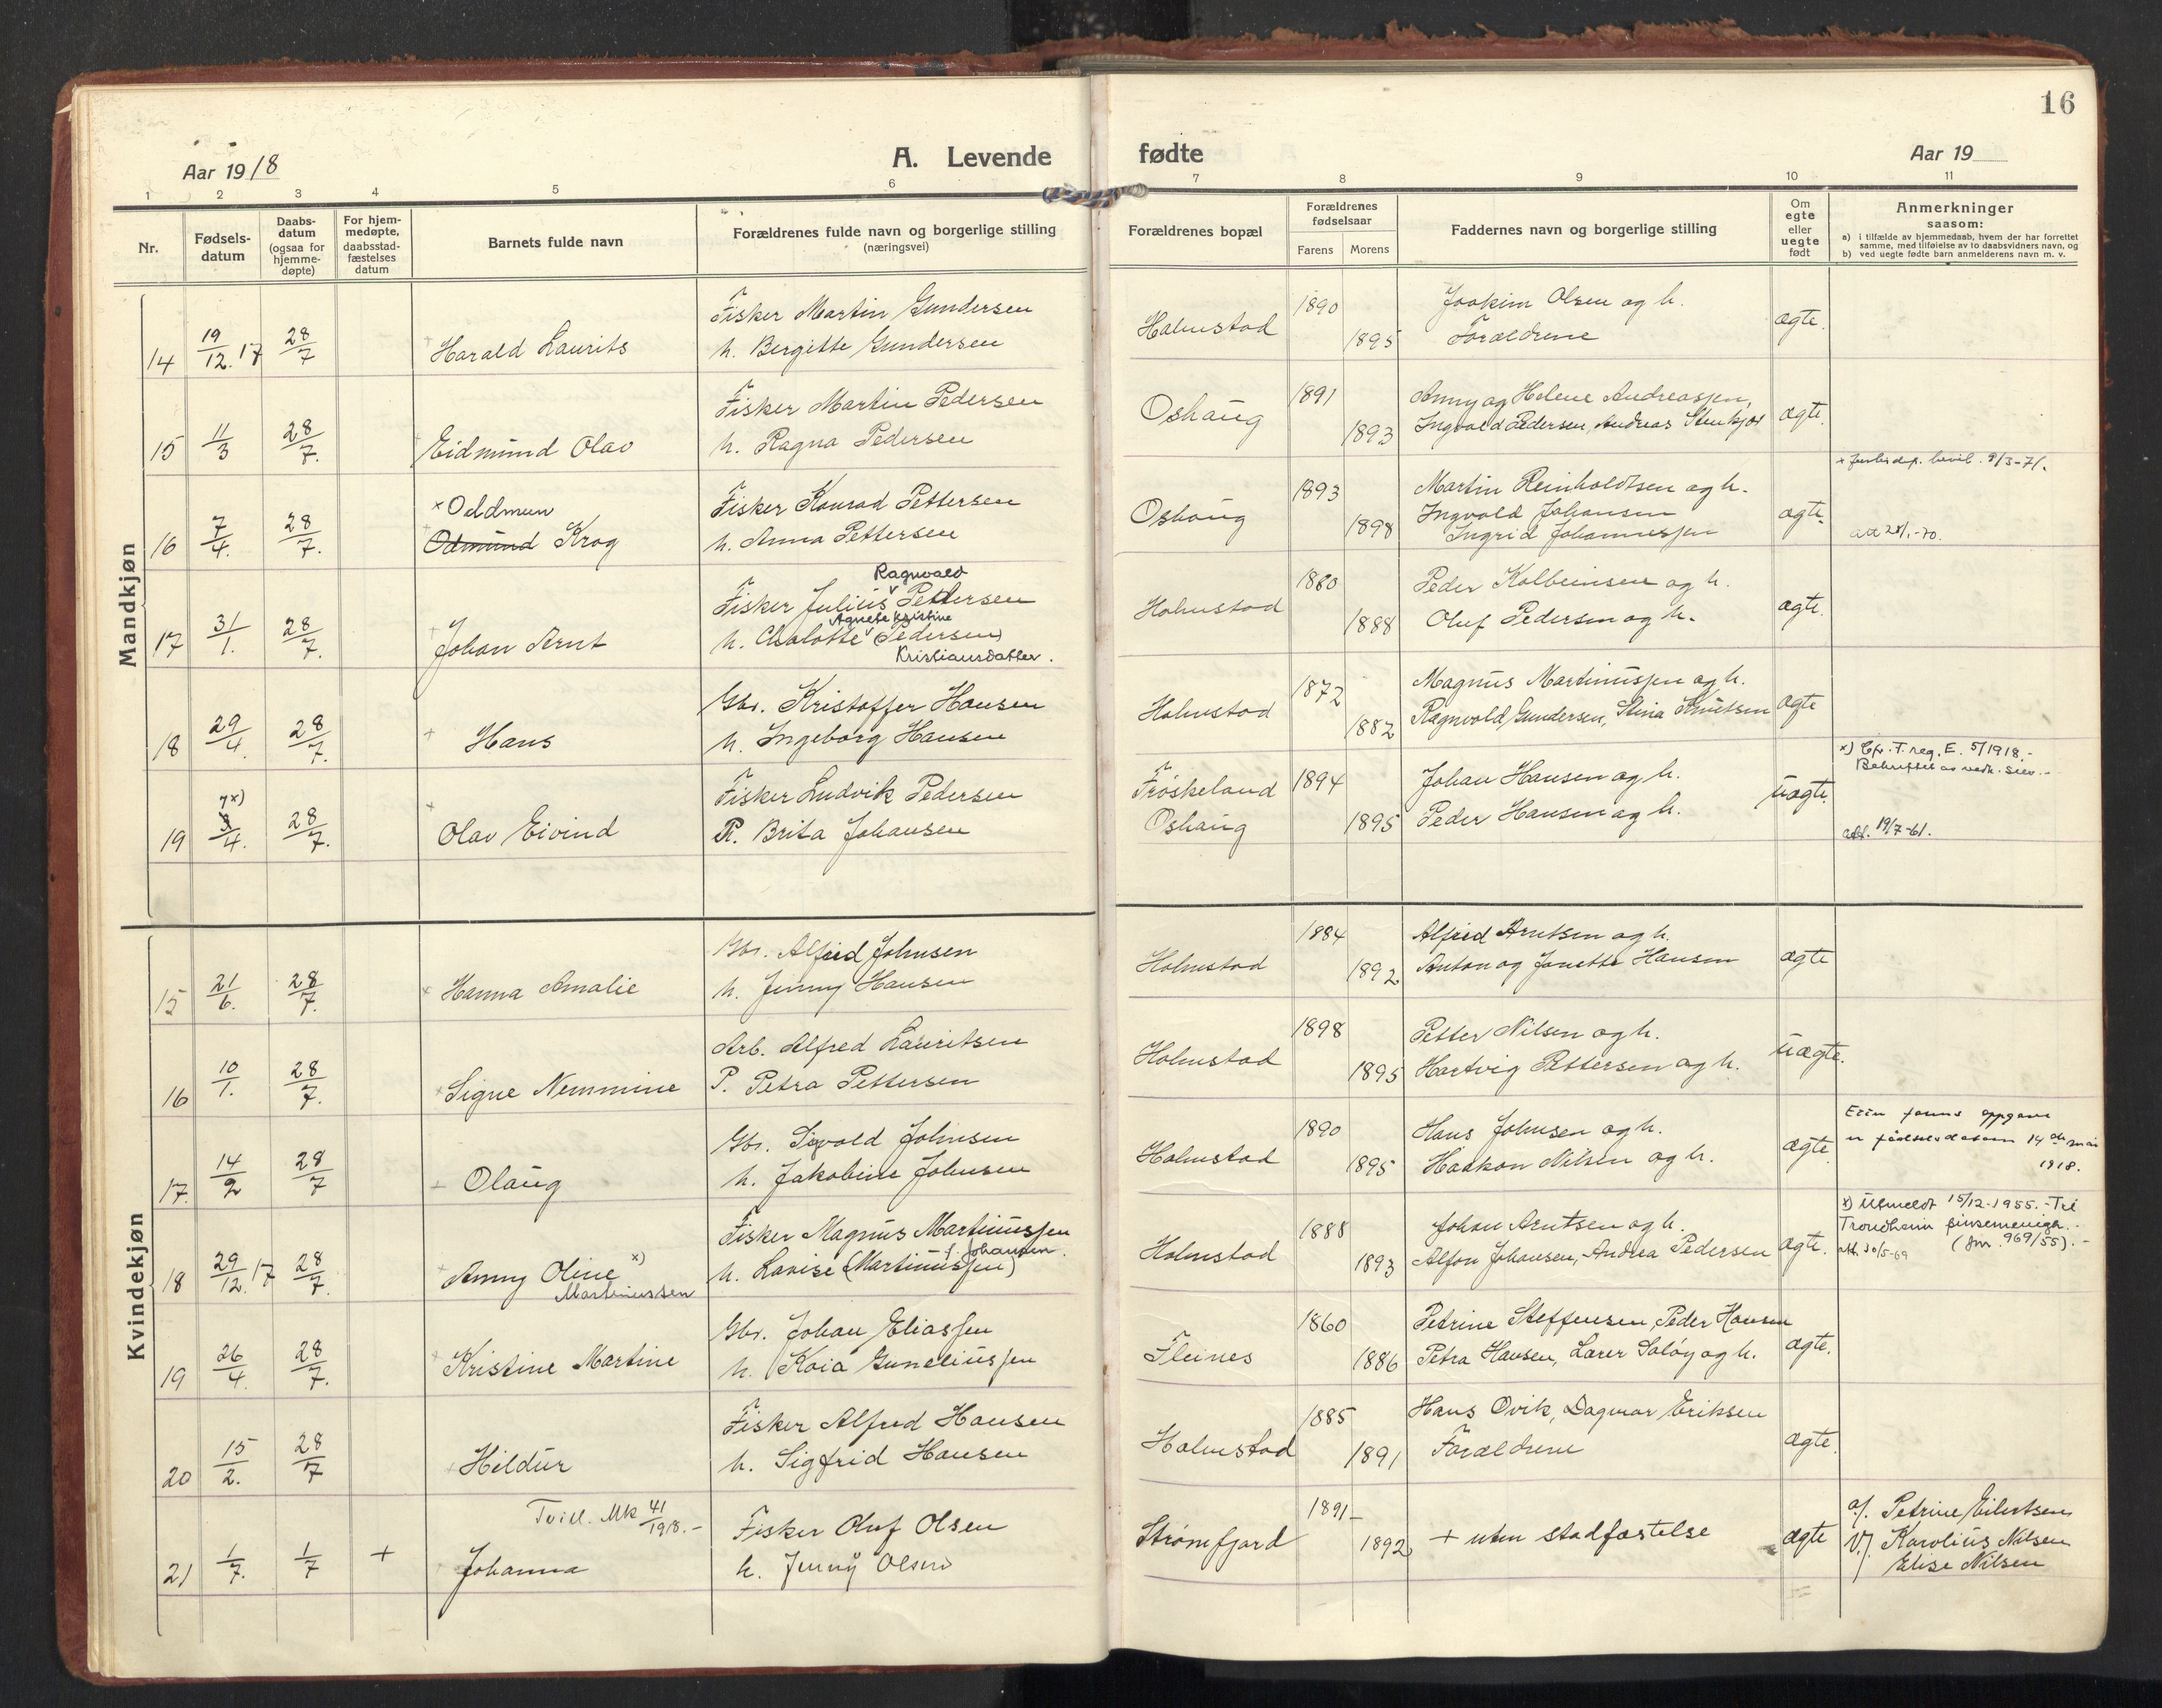 16
Aar 1918
A. Levende
fødte
Aar 19
1 2 3 4 5 6 7 8 9 10 11
Nr.
Fødsels-
datum
Daabs-
datum
(ogsaa for
hjemme-
døpte)
For hjem-
medøpte,
daabsstad-
fæstelses
datum
Barnets fulde navn
Forældrenes fulde navn og borgerlige stilling
(næringsvei)
Forældrenes bopæl
Forældrenes
fødselsaar
Farens Morens
Faddernes navn og borgerlige stilling
Om
egte
eller
uegte
født
Anmerkninger
saasom:
a) i tilfælde av hjemmedaab, hvem der har forrettet
samme, med tilføielse av to daabsvidners navn, og
b) ved uegte fødte barn anmelderens navn m. v.
Mandkjøn
Fisker Martin Gundersen 1890 Joakim Olsen og h.
14 19/12. 17 28/7 Harald Laurits h. Bergitte Gundersen Holmstad 1895 Forældrene ægte.
Fisker Martin Pedersen 1891 Anny og Helene Andreassen,
15 11/3 28/7. Eidmund Olav h. Ragna Pedersen Oshaug 1893 Ingvald Pedersen, Andreas Stenkjær ægte.
+ bevil. 9/3-71.
× Oddmun Fisker Konrad Pettersen 1893 Martin Reinholdtsen og h.
16 7/4. 28/7. Odmund Krog h. Anna Pettersen Oshaug 1898 Ingvald Johansen ægte.
Ingrid Johannessen
Ragnvald
Fisker Julius Pettersen 1880 Peder Kolbeinsen og h.
Agnete Kristine
17 31/1. 28/7. Johan Arnt h. Chalotte (Pedersen) Holmstad 1888 Oluf Pedersen og h. ægte.
Kristiansdatter.
Gbr. Kristoffer Hansen 1872 Magnus Martinussen og h.
18 29/4. 28/7. Hans h. Ingeborg Hansen Holmstad 1882 Ragnvald Gundersen, Stina Knutsen ægte
x) Cfr. F. reg. E. 5/1918.-
7x) Fisker Ludvik Pedersen Frøskeland 1894 Johan Hansen og h.
19 3/4. 28/7. Olav Eivind P. Brita Johansen Oshaug 1895 Peder Hansen og h. uægte.
att. 19/7-61.
Kvindekjøn
Gbr. Alfred Johnsen 1884 Alfred Arntsen og h.
15 21/6. 28/7. Hanna Amalie h. Jenny Hansen Holmstad 1892 Anton og Janette Hansen ægte
Arb. Alfred Lauritsen 1898 Petter Nilsen og h.
16 10/1. 28/7. Signe Nemmine P. Petra Pettersen Holmstad 1895 Hartvig Pettersen og h. uægte.
Gbr. Sigvald Johnsen 1890 Hans Johnsen og h.
17. 14/2 28/7 Olaug h. Jakobine Johnsen Holmstad 1895 Haakon Nilsen og h. ægte.
oppgave
er fødselsdatoen 14de mai
1918.
Fisker Magnus Martinussen 1888 Johan Arntsen og h.
f. Johansen.
18 29/12. 17 28/7. Anny Oline x) h. Lovise (Martinussen) Holmstad 1893 Alfon Johansen, Andrea Pedersen ægte.
Martinussen
x) Utmeldt 15/12-1955.- Til
Trondheim pinsemenigh.-
(Jnr. 969/55).-
att. 30/5-69
Gbr. Johan Eliassen 1860 Petrine Steffensen, Peder Hansen
19 26/4. 28/7. Kristine Martine h. Kaia Guneliussen Fleines 1886 Petra Hansen, Lærer Saløy og h. ægte.
Fisker Alfred Hansen 1885 Hans Ovik, Dagmar Eriksen
20 15/2. 28/7 Hildur h. Sigfrid Hansen Holmstad 1891 Forældrene ægte.
Tvill. Mk 41/1918.-
Fisker Oluf Olsen 1891
21 1/7. 1/7 + Johanna h. Jenny Olsen Strømfjord 1892 + uten stadfæstelse ægte
a/. Petrine Eilertsen
V/. Karolius Nilsen
Elise Nilsen